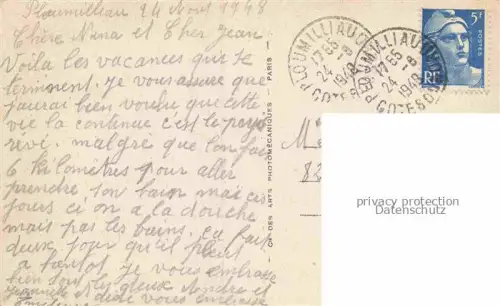 Ploumilliau 24 Aout 1948
Chère Nina et Cher Jean
Voila les vacances qui se
terminent. je vous assure que
j'aurai bien voulu que cette
vie la continue c'est le pays
revé. malgré que l'on fait
6 kilomètres pour aller
prendre son bain mais ces
jours ci on a la douche
mais pas les bains. ca fait
deux jour qu'il pleut
a bientot je vous embrasse
bien fort
les deux Andre et
vous embrasse
CIE DES ARTS PHOTOMÉCANIQUES - PARIS
PLOUMILLIAU
17 H 55
24 - 8
1948
COTES DU
PLOUMILLIAU
17 H 55
24 - 8
1948
COTES DU
5F
RF
POSTES
82
privacy protection
Datenschutz